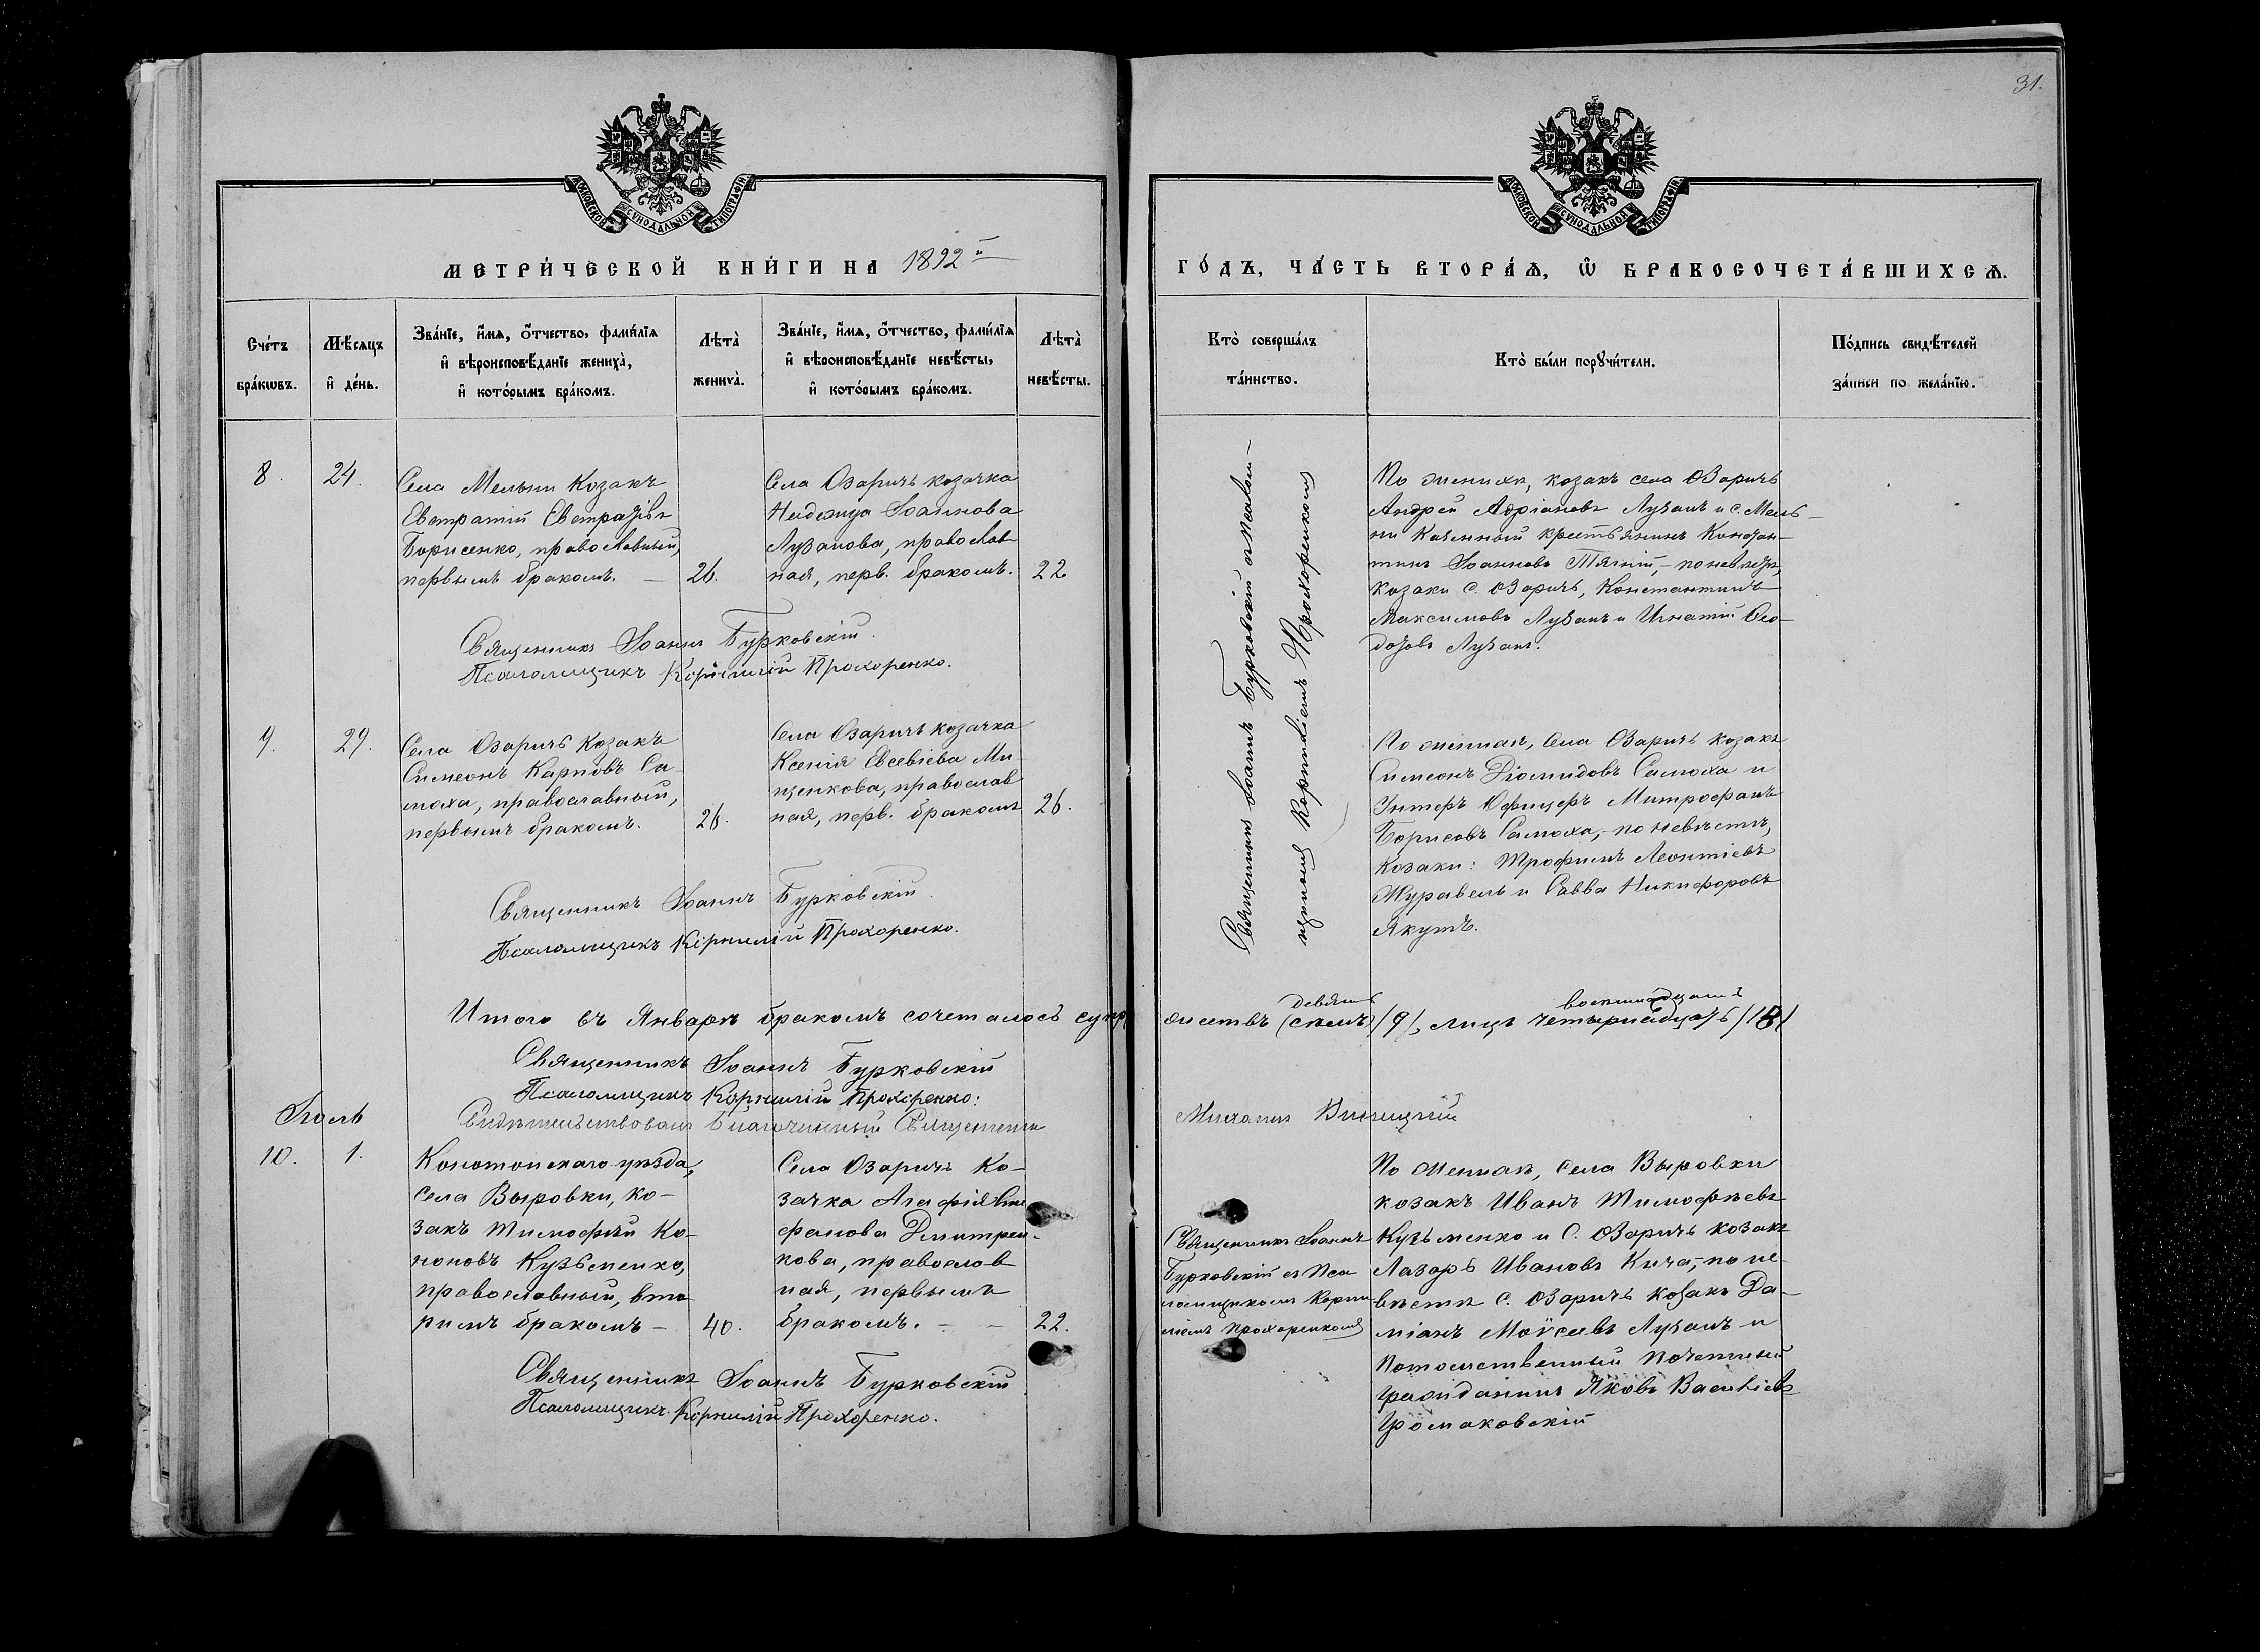 31.
МОСКОВСКОЙ СѴНОДАЛЬНОЙ ТИПОГРАФІИ
МОСКОВСКОЙ СѴНОДАЛЬНОЙ ТИПОГРАФІИ
МЕТРИ́ЧЕСКОЙ КНИ́ГИ НА 1892й
ГО́ДЪ, ЧА́СТЬ ВТОРА́Ѧ, Ѽ БРАКОСОЧЕТА́ВШИХСѦ.
Сче́тъ
бра́кѡвъ.
Мѣ́сѧцъ
и҆ де́нь.
Зва́нїе, и҆́мѧ, ѻ҆́тчество, фами́лїѧ
и҆ вѣроисповѣ́данїе жениха̀,
и҆ кото́рымъ бра́комъ.
Лѣта̀
жениха̀.
Зва́нїе, и҆́мѧ, ѻ҆́тчество, фами́лїѧ
и҆ вѣроисповѣ́данїе невѣ́сты,
и҆ кото́рымъ бра́комъ.
Лѣта̀
невѣ́сты.
Кто̀ соверша́лъ
та́инство.
Кто̀ бы́ли порꙋчи́тели.
По́дпись свидѣ́телей
за́писи по жела́нїю.
8.
24.
Села Мельни Козакъ
Евстратій Евстратіевъ
Борисенко, православный,
первымъ бракомъ. —
26.
Села Озаричъ козачка
Надежда Іоаннова
Лузанова, православ
ная, перв. бракомъ.
22
Священникъ Іоаннъ Бурковскій съ псалом-
щикомъ Корниліемъ Прохоренкомъ
По женихѣ, козакъ села Озаричъ
Андрей Адріановъ Лузанъ и с. Мель-
ни Казенный крестьянинъ Констан-
тинъ Іоанновъ, — по невѣстѣ,
козаки с. Озаричъ, Константинъ
Максимовъ Лузанъ и Игнатій Ѳео-
досовъ Лузанъ.
Священникъ Іоаннъ Бурковскій.
Псаломщикъ Корнилій Прохоренко.
9.
29.
Села Озаричъ Козакъ
Симеонъ Карповъ Са-
моха, православный,
первымъ бракомъ.
26.
Села Озаричъ козачка
Ксенія Евсевіева Ми-
щенкова, православ
ная, перв. бракомъ
26.
По женихѣ, села Озаричъ козакъ
Симеонъ Діомидовъ Самоха и
Унтеръ Офицеръ Митрофанъ
Борисовъ Самоха, — по невѣстѣ,
Козаки: Трофимъ Леонтіевъ
Журавель и Савва Никифоровъ
Якутъ.
Священникъ Іоаннъ Бурковскій.
Псаломщикъ Корнилій Прохоренко.
Итого въ Январѣ бракомъ сочеталось супр
девять восемнадцать
ужествъ (семь) /9/, лицъ четырнадцать /18/
Священникъ Іоаннъ Бурковскій
Псаломщикъ Корнилій Прохоренко:
Свидѣтельствовалъ Благочинный Священникъ
Михаилъ
10.
1.
Конотопскаго уѣзда,
села Выровки, ко-
закъ Тимофѣй Ко-
ноновъ Кузьменко,
православный, вто
рымъ бракомъ —
40.
Села Озаричъ Ко-
зачка Агафія Сте
фанова Дмитрен-
кова, православ
ная, первымъ
бракомъ. — —
22.
Священникъ Іоаннъ
Бурковскій съ Пса
ломщикомъ Корни
ліемъ Прохоренкомъ
По женихѣ, села Выровки
козакъ Иванъ Тимофѣевъ
Кузьменко и С. Озаричъ козакъ
Лазарь Ивановъ Кича, — по не-
вѣстѣ с. Озаричъ козакъ Да-
міанъ Моѵсеевъ Лузанъ и
Потомственный почетный
гражданинъ Яковъ Васильевъ
Громаковскій
Священникъ Іоаннъ Бурковскій
Псаломщикъ Корнилій Прохоренко.